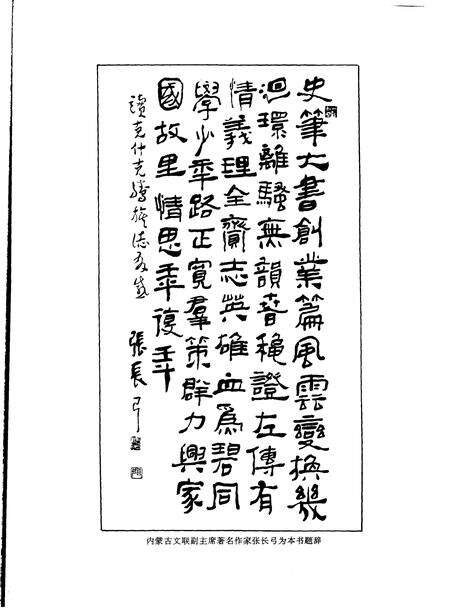 史筆大書創業篇風雲變換幾
洄環離騷無韻春穐證左傳有
情義理全齎志英雄血爲碧同
學少年路正寬羣策群力興家
國故里情思年復年
讀克什克騰旗志有感
張長弓
内蒙古文联副主席著名作家张长弓为本书题辞